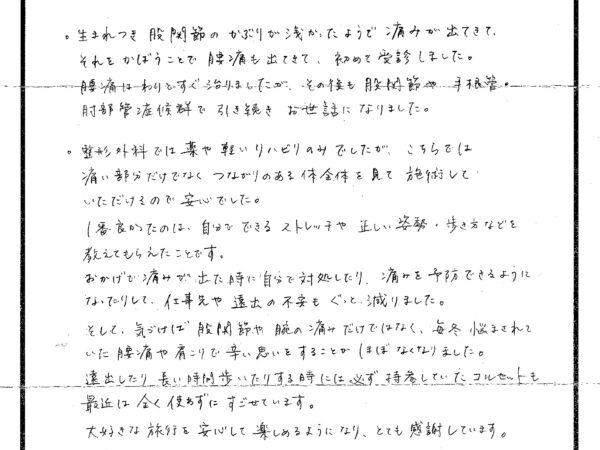 。生まれつき股関節のかぶりが浅かったようで痛みが出てきて、
それをかばうことで腰痛も出てきて、初めて受診しました。
腰痛はわりとすぐ治りましたが、その後も股関節や手根管・
肘部管症候群で引き続きお世話になりました。
。整形外科では薬や軽いリハビリのみでしたが、こちらでは
痛い部分だけでなくつながりのある体全体を見て施術して
いただけるので安心でした。
1番良かったのは、自分でできるストレッチや正しい姿勢・歩き方などを
教えてもらえたことです。
おかげで痛みが出た時に自分で対処したり、痛みを予防できるように
なったりして、仕事先や遠出の不安もぐっと減りました。
そして、気づけば股関節や腕の痛みだけではなく、毎冬悩まされて
いた腰痛や肩こりで辛い思いをすることがほぼなくなりました。
遠出したり長い時間歩いたりする時には必ず持参していたコルセットも
最近は全く使わずにすごせています。
大好きな旅行を安心して楽しめるようになり、とても感謝しています。